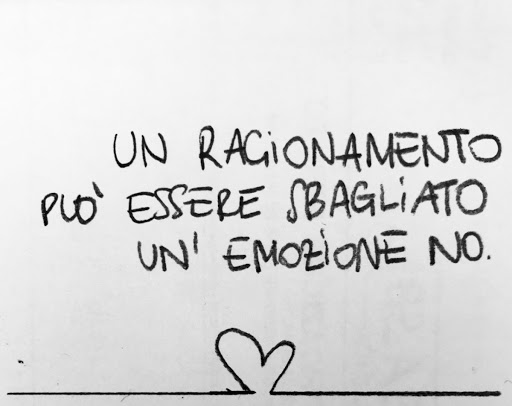 UN RAGIONAMENTO
PUO' ESSERE SBAGLIATO
UN' EMOZIONE NO.